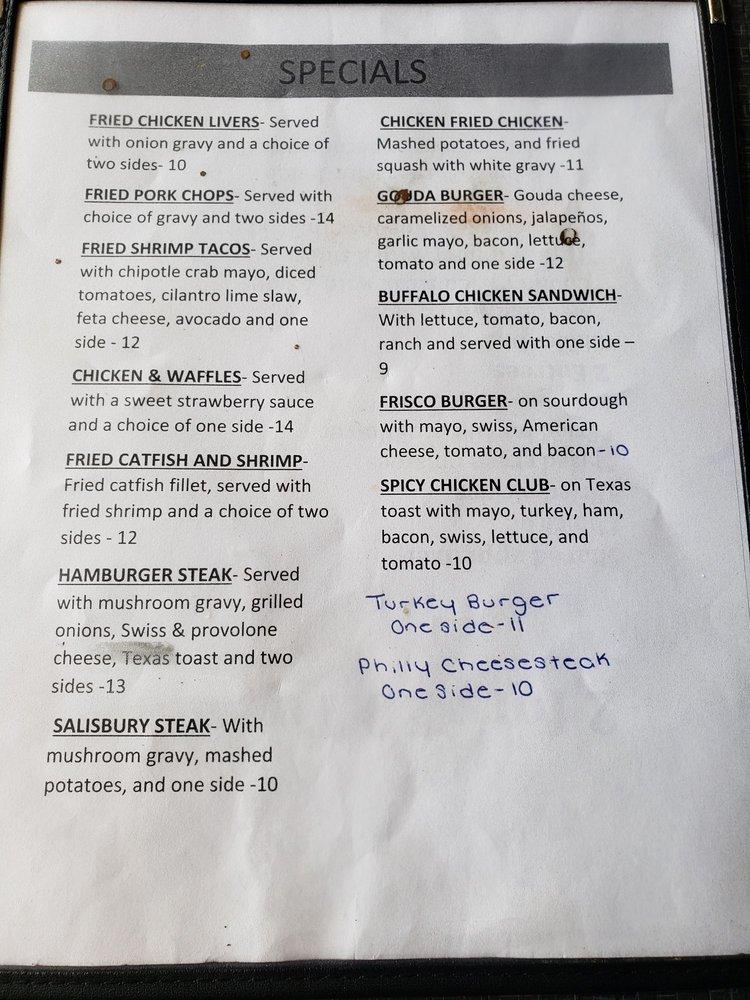 SPECIALS
FRIED CHICKEN LIVERS- Served
with onion gravy and a choice of
two sides- 10
FRIED PORK CHOPS- Served with
choice of gravy and two sides -14
FRIED SHRIMP TACOS- Served
with chipotle crab mayo, diced
tomatoes, cilantro lime slaw,
feta cheese, avocado and one
side - 12
CHICKEN & WAFFLES- Served
with a sweet strawberry sauce
and a choice of one side -14
FRIED CATFISH AND SHRIMP-
Fried catfish fillet, served with
fried shrimp and a choice of two
sides - 12
HAMBURGER STEAK- Served
with mushroom gravy, grilled
onions, Swiss & provolone
cheese, Texas toast and two
sides -13
SALISBURY STEAK- With
mushroom gravy, mashed
potatoes, and one side -10
CHICKEN FRIED CHICKEN-
Mashed potatoes, and fried
squash with white gravy -11
GOUDA BURGER- Gouda cheese,
caramelized onions, jalapeños,
garlic mayo, bacon, lettuce,
tomato and one side -12
BUFFALO CHICKEN SANDWICH-
With lettuce, tomato, bacon,
ranch and served with one side –
9
FRISCO BURGER- on sourdough
with mayo, swiss, American
cheese, tomato, and bacon-10
SPICY CHICKEN CLUB- on Texas
toast with mayo, turkey, ham,
bacon, swiss, lettuce, and
tomato -10
Turkey Burger
One side-11
Philly Cheesesteak
One Side-10